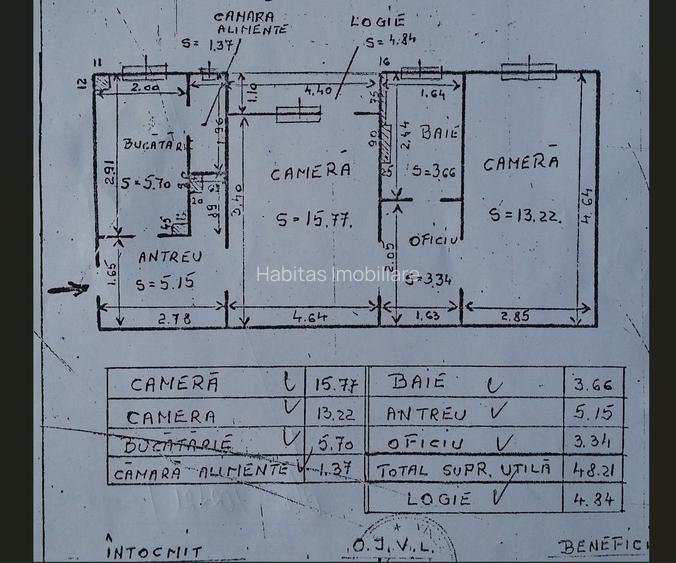 CAMARA
ALIMENTE
S= 1.37
LOGIE
S= 4.84
11
12
16
2.00
1.10
4.40
75
1.64
BUCATĂRIE
S=5.70
2.91
1.96
CAMERĂ
S=15.77.
3.40
90
2,44
BAIE
S=3,66
CAMERĂ
S=13.22.
4.64
45
89
ANTREU
S=5.15
1.65
OFICIU
S=3,34
2.05
Habitas Imobiliare
2.78
4.64
1,63
2.85
CAMERĂ 15.77 BAIE 3.66
CAMERA 13.22 ANTREU 5.15
BUCĂTĂRIE 5.70 OFICIU 3.34
CĂMARĂ ALIMENTE 1.37 TOTAL SUPR. UTILĂ 48.21
LOGIE 4.84
ÎNTOCMIT
O.J.V.L.
BENEFICI